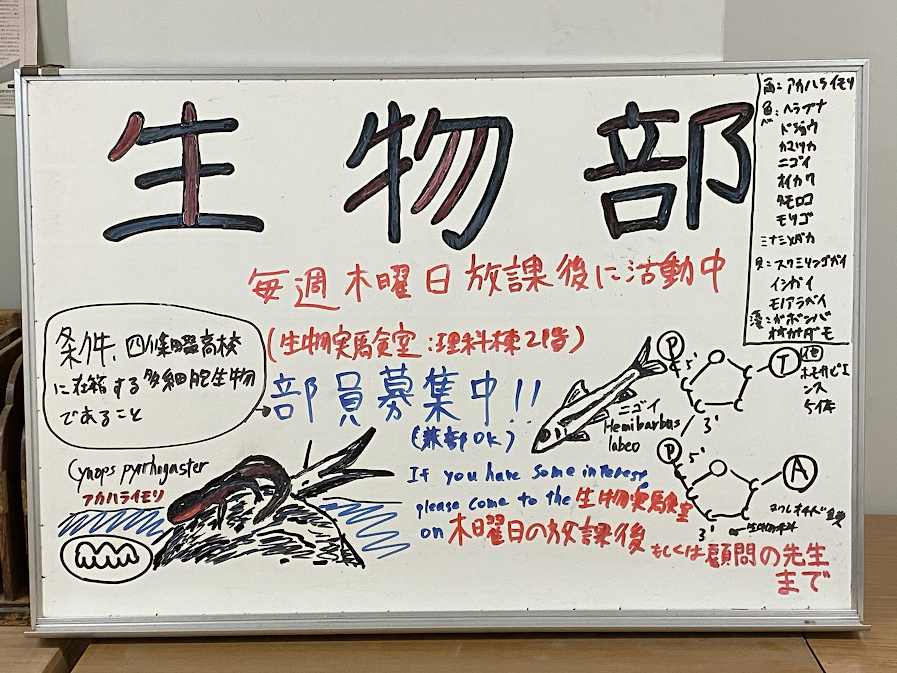 生物部
毎週木曜日放課後に活動中
(生物実験室:理科棟2階)
条件、四條畷高校
に在籍する多細胞生物
であること
部員募集中!!
(兼部OK)
ニゴイ
Hemibarbus
labeo
Cynops pyrrhogaster
アカハライモリ
If you have some interest,
please come to the 生物実験室
on 木曜日の放課後 もしくは顧問の先生
まで
アカハライモリ
魚:ヘラブナ
ドジョウ
カマツカ
ニゴイ
オイカワ
タモロコ
モツゴ
ミナミメダカ
貝:スクミリンゴガイ
イシガイ
モノアラガイ
藻:ガボンバ
オオカナダモ
他
ホモサピエ
ンス
5体
P
5'
T
3'
P
5'
A
3'